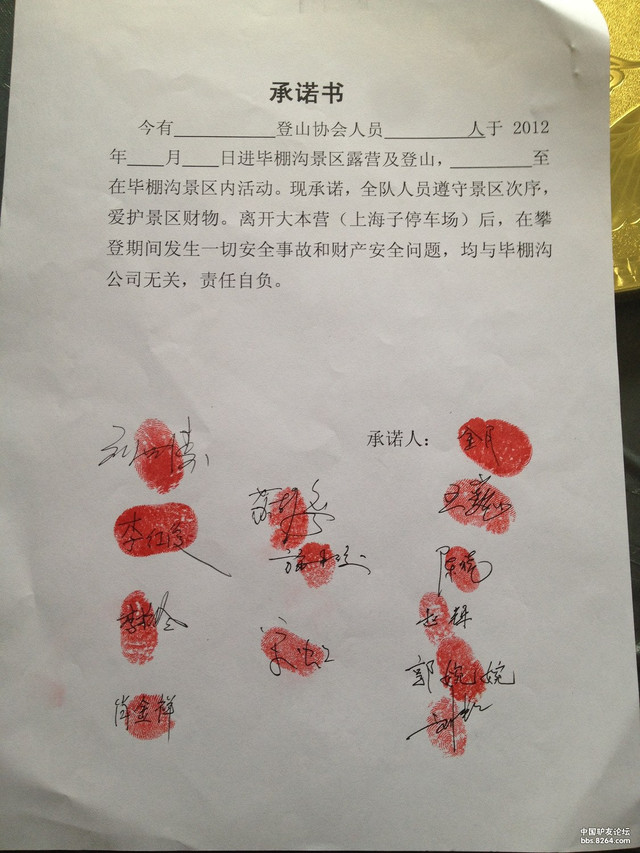 承诺书
今有__________登山协会人员________人于 2012
年____月____日进毕棚沟景区露营及登山，________至
在毕棚沟景区内活动。现承诺，全队人员遵守景区次序，
爱护景区财物。离开大本营（上海子停车场）后，在攀
登期间发生一切安全事故和财产安全问题，均与毕棚沟
公司无关，责任自负。
承诺人：
赵辉
郭婉婉
肖金祥
中国驴友论坛
bbs.8264.com